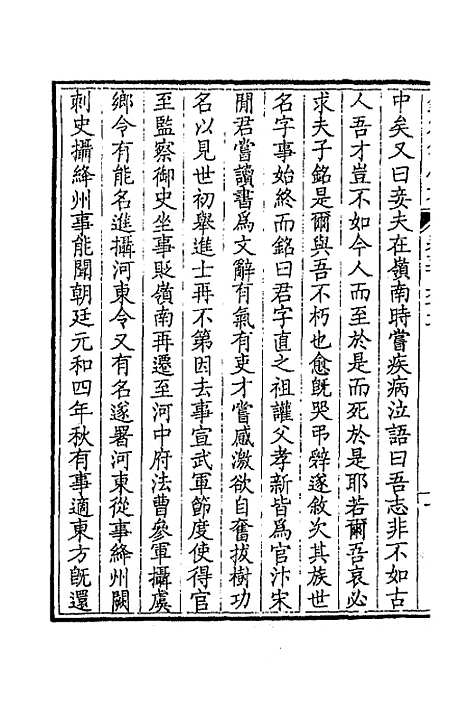 中矣又曰妾夫在嶺南時嘗疾病泣語曰吾志非不如古
人吾才豈不如今人而至於是而死於是耶若爾吾哀必
求夫子銘是爾與吾不朽也愈旣哭弔辭遂敘次其族世
名字事始終而銘曰君字直之祖讙父孝新皆爲官汴宋
閒君嘗讀書爲文辭有氣有吏才嘗感激欲自奮拔樹功
名以見世初舉進士再不第因去事宣武軍節度使得官
至監察御史坐事貶嶺南再遷至河中府法曹參軍攝虞
鄉令有能名進攝河東令又有名遂署河東從事絳州闕
刺史攝絳州事能聞朝廷元和四年秋有事適東方旣還